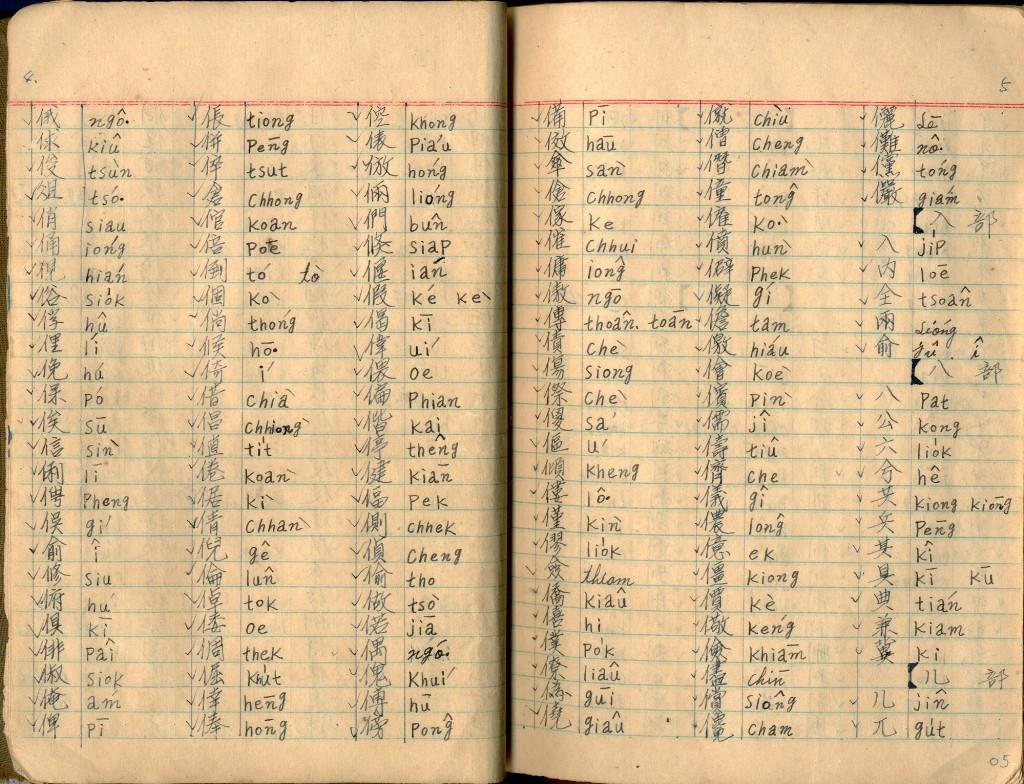 4.
俄 ngô͘
俅 kiû
俊 tsùn
俎 tsó͘
俏 siau
俑 ióng
俔 hián
俗 sio̍k
俘 hû
俚 lí
俛 hú
保 pó
俟 sū
信 sìn
俐 lī
俜 Pheng
俁 gí
俞 î
修 siu
俯 hú
俱 kī
俳 Pâi
俶 siok
俺 ám
俾 Pī
倀 tiong
倂 Pēng
倅 tsut
倉 Chhong
倌 koân
倍 Poē
倒 tó tò
個 kò
倘 thóng
候 hō͘
倚 í
借 chià
倡 Chhiòng
值 ti̍t
倦 koàn
倨 kì
倩 Chhàn
倪 gê
倫 lûn
倬 tok
倭 oe
倜 thek
倔 Khu̍t
倖 hēng
俸 hōng
倥 khong
俵 Piáu
倣 hóng
倆 lióng
們 bûn
倏 siap
偃 ián
假 ké kè
偈 kī
偉 uí
偎 oe
偏 Phian
偕 kai
停 thêng
健 kiān
偪 Pek
側 chhek
偵 Cheng
偷 tho
做 tsò
偌 jiā
偶 ngó͘
傀 Khuí
傅 hū
傍 Pông
5
備 Pī
傚 hāu
傘 sàn
傖 Chhong
傢 ke
催 Chhui
傭 iông
傲 ngō
傳 thoân. toān
債 chè
傷 siong
傺 chè
傻 sá
傴 ú
傾 kheng
僂 lô͘
僅 kìn
僇 lio̍k
僉 thiam
僑 kiâu
僖 hi
僕 Po̍k
僚 liâu
僞 gūi
僥 giâu
僦 chiù
僧 cheng
僭 chiàm
僮 tông
僱 kò͘
僨 hùn
僻 Phek
儗 gí
儋 tam
儌 hiáu
會 koē
儐 Pìn
儒 jî
儔 tiû
儕 che
儀 gî
儂 lông
億 ek
僵 kiong
價 kè
儆 kéng
儉 khiām
儘 Chīn
儻 siông
儳 Cham
儷 Lē
儺 nô͘
儻 tóng
儼 giám
【 入 部
入 ji̍p
內 loē
全 tsoân
兩 Lióng
俞 jû . î
【 八 部
八 Pat
公 kong
六 lio̍k
兮 hê
共 kiong kiōng
兵 Peng
其 kî
具 kī kū
典 tián
兼 kiam
冀 kì
【 儿 部
儿 jîn
兀 gu̍t
05